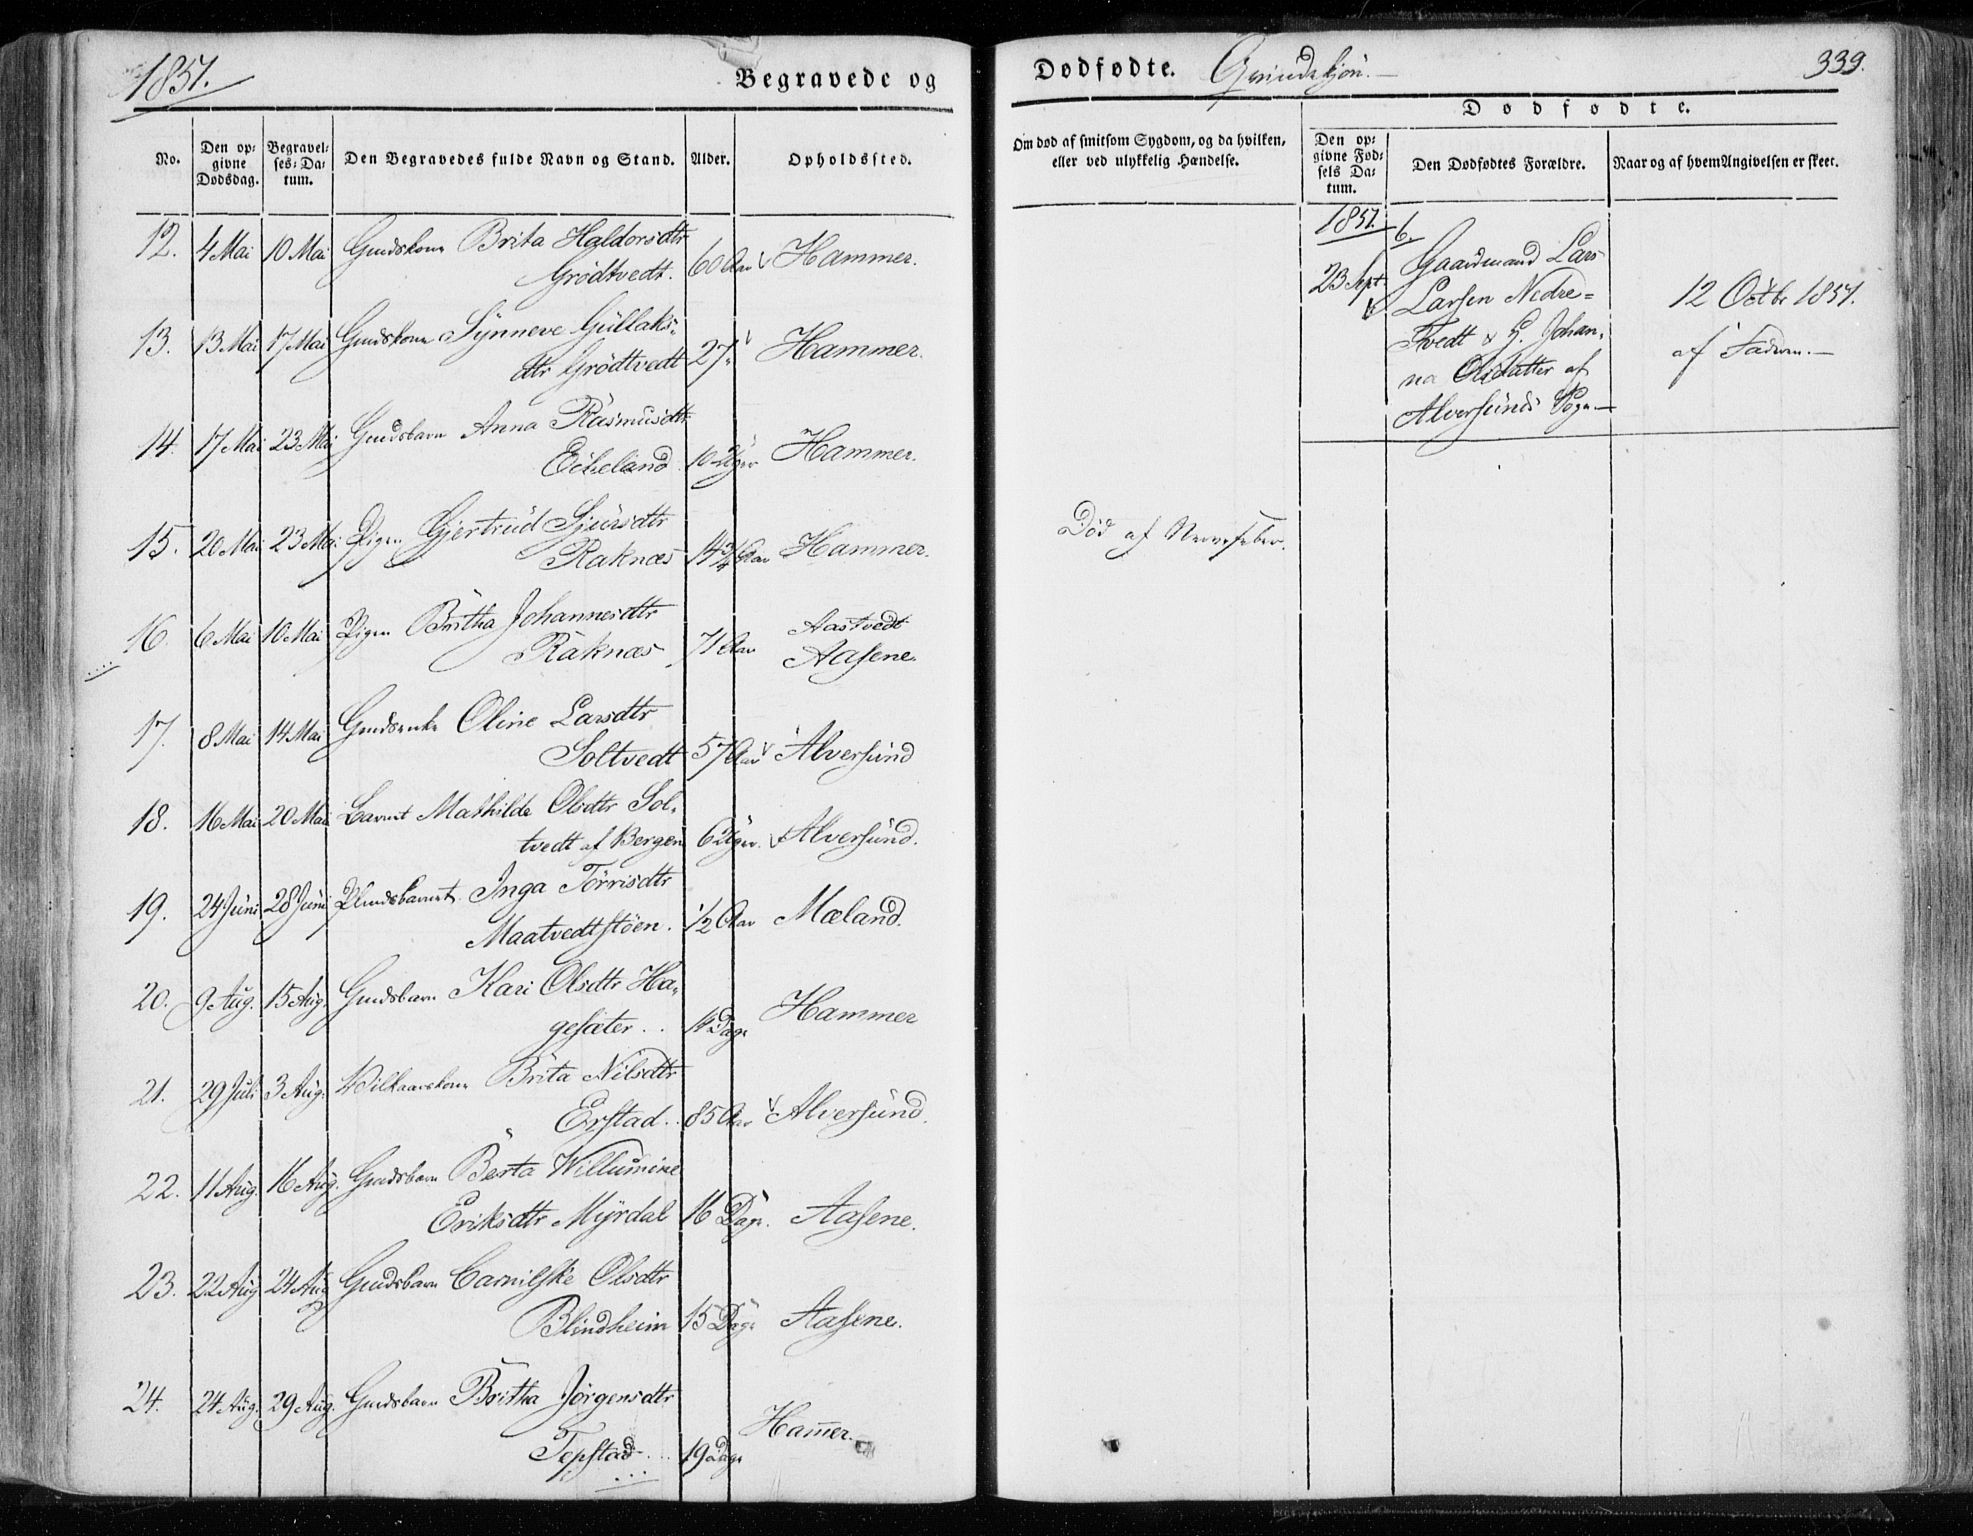 1851.
Begravede og
Dødfødte. Qvindekjön.
339.
Dødfødte.
No.
Den opgivne Dødsdag.
Begravelses-Datum.
Den Begravedes fulde Navn og Stand.
Alder.
Opholdssted.
Om død af smitsom Sygdom, og da hvilken, eller ved ulykkelig Hændelse.
Den opgivne Fødsels Datum.
Den Dødfødtes Forældre.
Naar og af hvem Angivelsen er skeet.
12. 4 Mai 10 Mai Gmdskone Brita Haldorsdtr
Grödtvedt. 60 Aar Hammer.
13. 13 Mai 17 Mai Gmdskone Synneve Gullaks-
dtr Grödtvedt 27 " Hammer.
14. 17 Mai 23 Mai Gmdsbarn Anna Rasmusdtr
Eikeland 10 Uger Hammer.
15. 20 Mai 23 Mai Pigen Gjertrud Sjursdtr
Raknæs 14 3/4 Aar Hammer.
Död af Nervefeber.
16. 6 Mai 10 Mai Pigen Britha Johannesdtr
Raknæs 71 Aar Aastvedt
Aasene.
17. 8 Mai 14 Mai Gmdsenke Oline Larsdtr
Soltvedt 57 Aar Alversund
18. 16 Mai 20 Mai Barnet Mathilde Olsdtr Sol-
tvedt af Bergen 6 Uger. Alversund.
19. 24 Juni 28 Juni Plmdsbarnet Inga Törrisdtr
Maatvedtstöen. 1/2 Aar Mæland.
20. 9 Aug. 15 Aug. Gmdsbarn Kari Olsdtr Ha-
gesæter. . 14 Dage Hammer
21. 29 Juli 3 Aug. Vilkaarskone Brita Nilsdtr
Erstad. . 85 Aar Alversund.
22. 11 Aug. 16 Aug. Gmdsbarn Berta Willumine
Eriksdtr Myrdal 16 Dage. Aasene.
23. 22 Aug 24 Aug Gmdsbarn Carnilske Olsdtr
Blindheim 15 Dage Aasene.
24. 24 Aug. 29 Aug. Gmdsbarn Britha Jörgensdtr
Tepstad 19 Dage Hammer.
1851. 6.
23 Sept. Gaardmand Lars
Larsen Nedre-
Tvedt & H. Johan-
na Olsdatter af
Alversunds Sogn
12 Octbr 1851.
af Faderen.